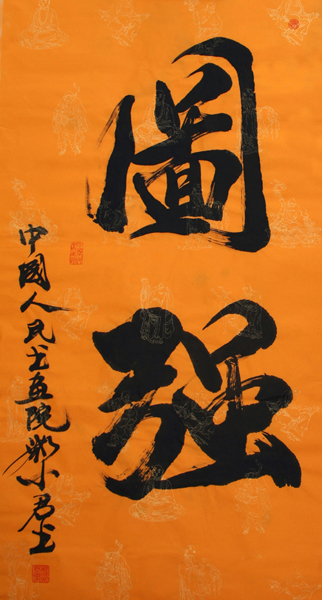 圖强
中國人民书画院鄭小君书